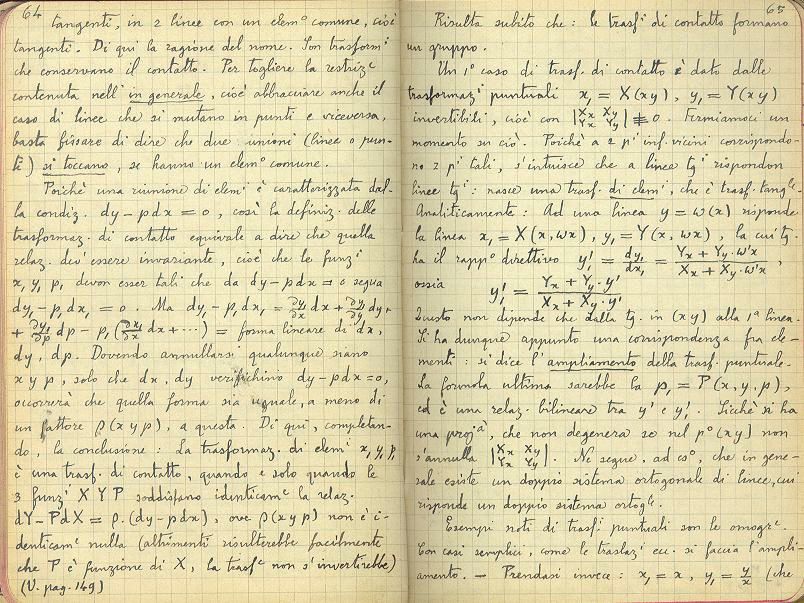 64
tangenti, in 2 linee con un elem° comune, cioè
tangenti. Di qui la ragione del nome. Son trasformⁱ
che conservano il contatto. Per togliere la restrizᵉ
contenuta nell' in generale, cioè abbracciare anche il
caso di linee che si mutano in punti e viceversa,
basta fissare di dire che due unioni (linee o pun-
ti) si toccano, se hanno un elem° comune.
Poichè una riunione di elemⁱ è caratterizzata dal-
la condiz. dy - pdx = 0, così la definiz. delle
trasformaz. di contatto equivale a dire che quella
relaz. dev'essere invariante, cioè che le funzⁱ
x₁ y₁ p₁ devon esser tali che da dy - pdx = 0 segua
dy₁ - p₁dx₁ = 0. Ma dy₁ - p₁dx₁ = ∂y₁/∂x dx + ∂y₁/∂y dy +
+ ∂y₁/∂p dp - p₁(∂x₁/∂x dx + ···) = forma lineare di dx,
dy, dp. Dovendo annullarsi qualunque siano
x y p, solo che dx, dy verifichino dy - pdx = 0,
occorrerà che quella forma sia uguale, a meno di
un fattore ρ(xyp), a questa. Di qui, completan-
do, la conclusione: La trasformaz. di elemⁱ x₁y₁p₁
è una trasf. di contatto, quando e solo quando le
3 funzⁱ X Y P soddisfano identicamᵉ la relaz.
dY - PdX = ρ.(dy - pdx), ove ρ(xyp) non è i-
denticamᵉ nulla (altrimenti risulterebbe facilmente
che P è funzione di X, la trasfᵉ non s'invertirebbe)
(V. pag. 149)
65
Risulta subito che: le trasfⁱ di contatto formano
un gruppo.
Un 1° caso di trasf. di contatto è dato dalle
trasformazⁱ puntuali x₁ = X(xy), y₁ = Y(xy)
invertibili, cioè con |Xx Xy Yx Yy| ≢ 0. Fermiamoci un
momento su ciò. Poichè a 2 pⁱ inf. vicini corrispondo-
no 2 pⁱ tali, s'intuisce che a linee tgⁱ rispondon
linee tgⁱ: nasce una trasf. di elemⁱ, che è trasf. tangˡᵉ.
Analiticamente: Ad una linea y = ω(x) risponde
la linea x₁ = X(x, ωx), y₁ = Y(x, ωx), la cui tg.
ha il rapp° direttivo y₁' = dy₁/dx₁ = (Yx + Yy·ω'x)/(Xx + Xy·ω'x),
ossia y₁' = (Yx + Yy·y')/(Xx + Xy·y')
Questo non dipende che dalla tg. in (xy) alla 1ᵃ linea.
Si ha dunque appunto una corrispondenza fra ele-
menti: si dice l'ampliamento della trasf. puntuale.
La formola ultima sarebbe la p₁ = P(x, y, p),
ed è una relaz. bilineare tra y' e y₁'. Sicchè si ha
una projᵃ, che non degenera se nel p° (xy) non
s'annulla |Xx Xy Yx Yy|. Ne segue, ad es°, che in gene-
rale esiste un doppio sistema ortogonale di linee, cui
risponde un doppio sistema ortogˡᵉ.
Esempi noti di trasfⁱ puntuali son le omogrᵉ.
Con casi semplici, come le traslazⁱ ecc. si faccia l'ampli-
amento. — Prendasi invece: x₁ = x, y₁ = y/x (che